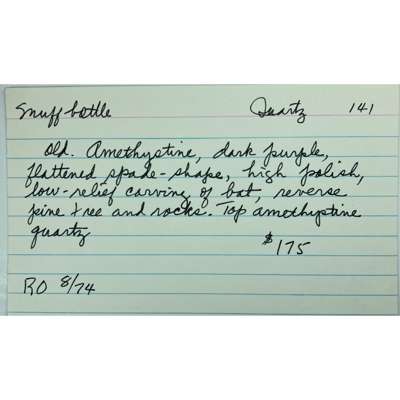 Snuff bottle Quartz 141
Old. Amethystine, dark purple,
flattened spade-shape, high polish,
low-relief carving of bat, reverse
pine tree and rocks. Top amethystine
quartz
$175
RO 8/74